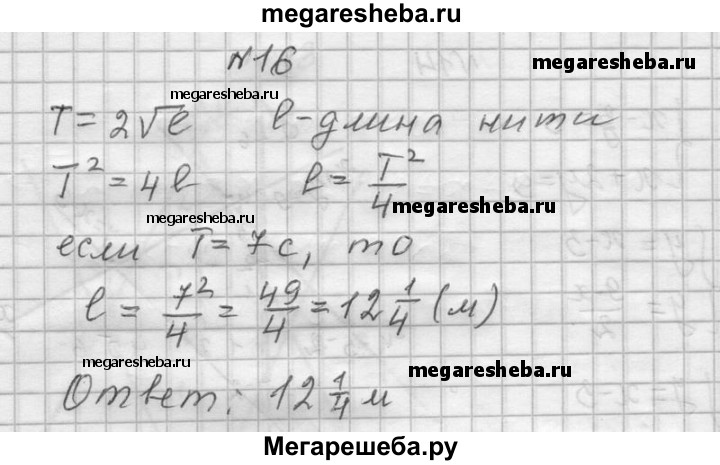 megaresheba.ru
№16
megaresheba.ru
megaresheba.ru
T = 2√l    l - длина нити
T² = 4l    l = T²/4
megaresheba.ru
megaresheba.ru
если T = 7с, то
l = 7²/4 = 49/4 = 12 1/4 (м)
megaresheba.ru
megaresheba.ru
Ответ: 12 1/4 м
Мегарешеба.ру